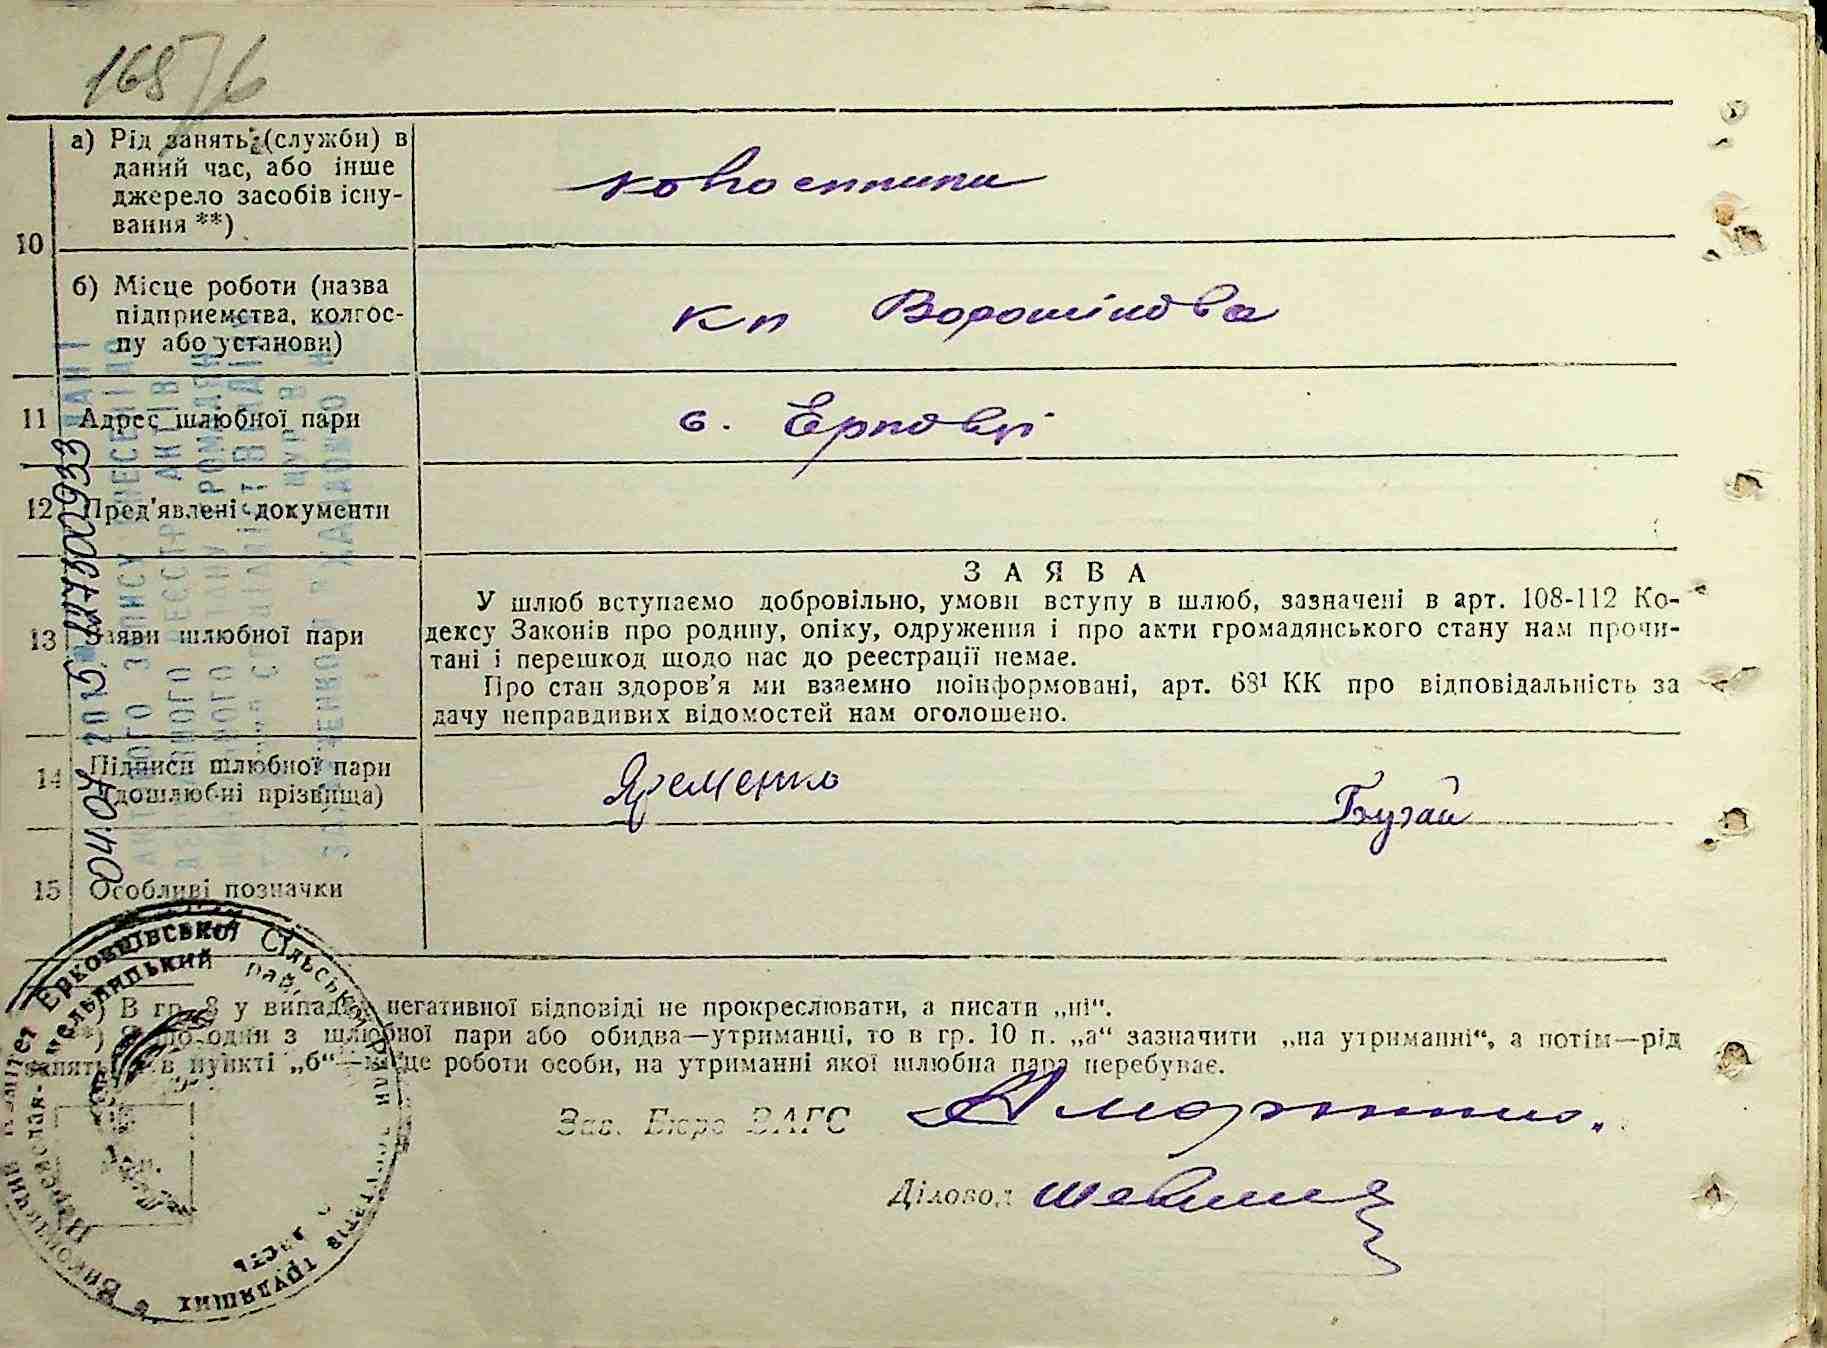 168 76
10
а) Рід занять (служби) в
даний час, або інше
джерело засобів існу-
вання **)
б) Місце роботи (назва
підприємства, колгос-
пу або установи)
Ворошилова
11 Адрес шлюбної пари
с. Ерковці
12 Пред'явлені документи
13 Заяви шлюбної пари
ЗАЯВА
У шлюб вступаємо добровільно, умови вступу в шлюб, зазначені в арт. 108-112 Ко-
дексу Законів про родину, опіку, одруження і про акти громадянського стану нам прочи-
тані і перешкод щодо нас до реєстрації немає.
Про стан здоров'я ми взаємно поінформовані, арт. 68¹ КК про відповідальність за
дачу неправдивих відомостей нам оголошено.
14 Підписи шлюбної пари
(дошлюбні прізвища)
Яременко Бугай
15 Особливі позначки
*) В гр. 8 у випадку негативної відповіді не прокреслювати, а писати „ні“.
**) Якщо один з шлюбної пари або обидва—утриманці, то в гр. 10 п. „а“ зазначити „на утриманні“, а потім—рід
занять і в пункті „б“—місце роботи особи, на утриманні якої шлюбна пара перебуває.
Зав. Бюро ЗАГС
Діловод
Виконавчий комітет Ерковцівської Сільської ради депутатів трудящих
Переяслав-Хмельницький район